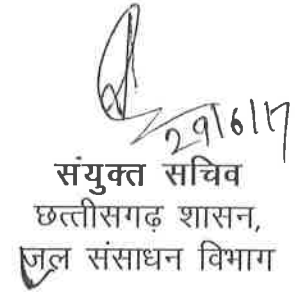 29/6/17
संयुक्त सचिव
छत्तीसगढ़ शासन,
जल संसाधन विभाग